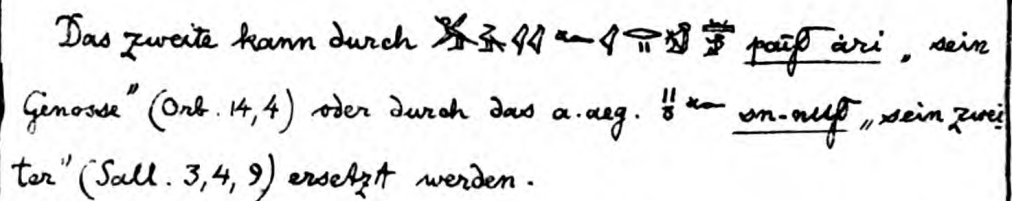 Das zweite kann durch païf àri „sein
Genosse" (Orb. 14,4) oder durch das a.aeg. sn-nuf „sein zwei
ter" (Sall. 3,4,9) ersetzt werden.